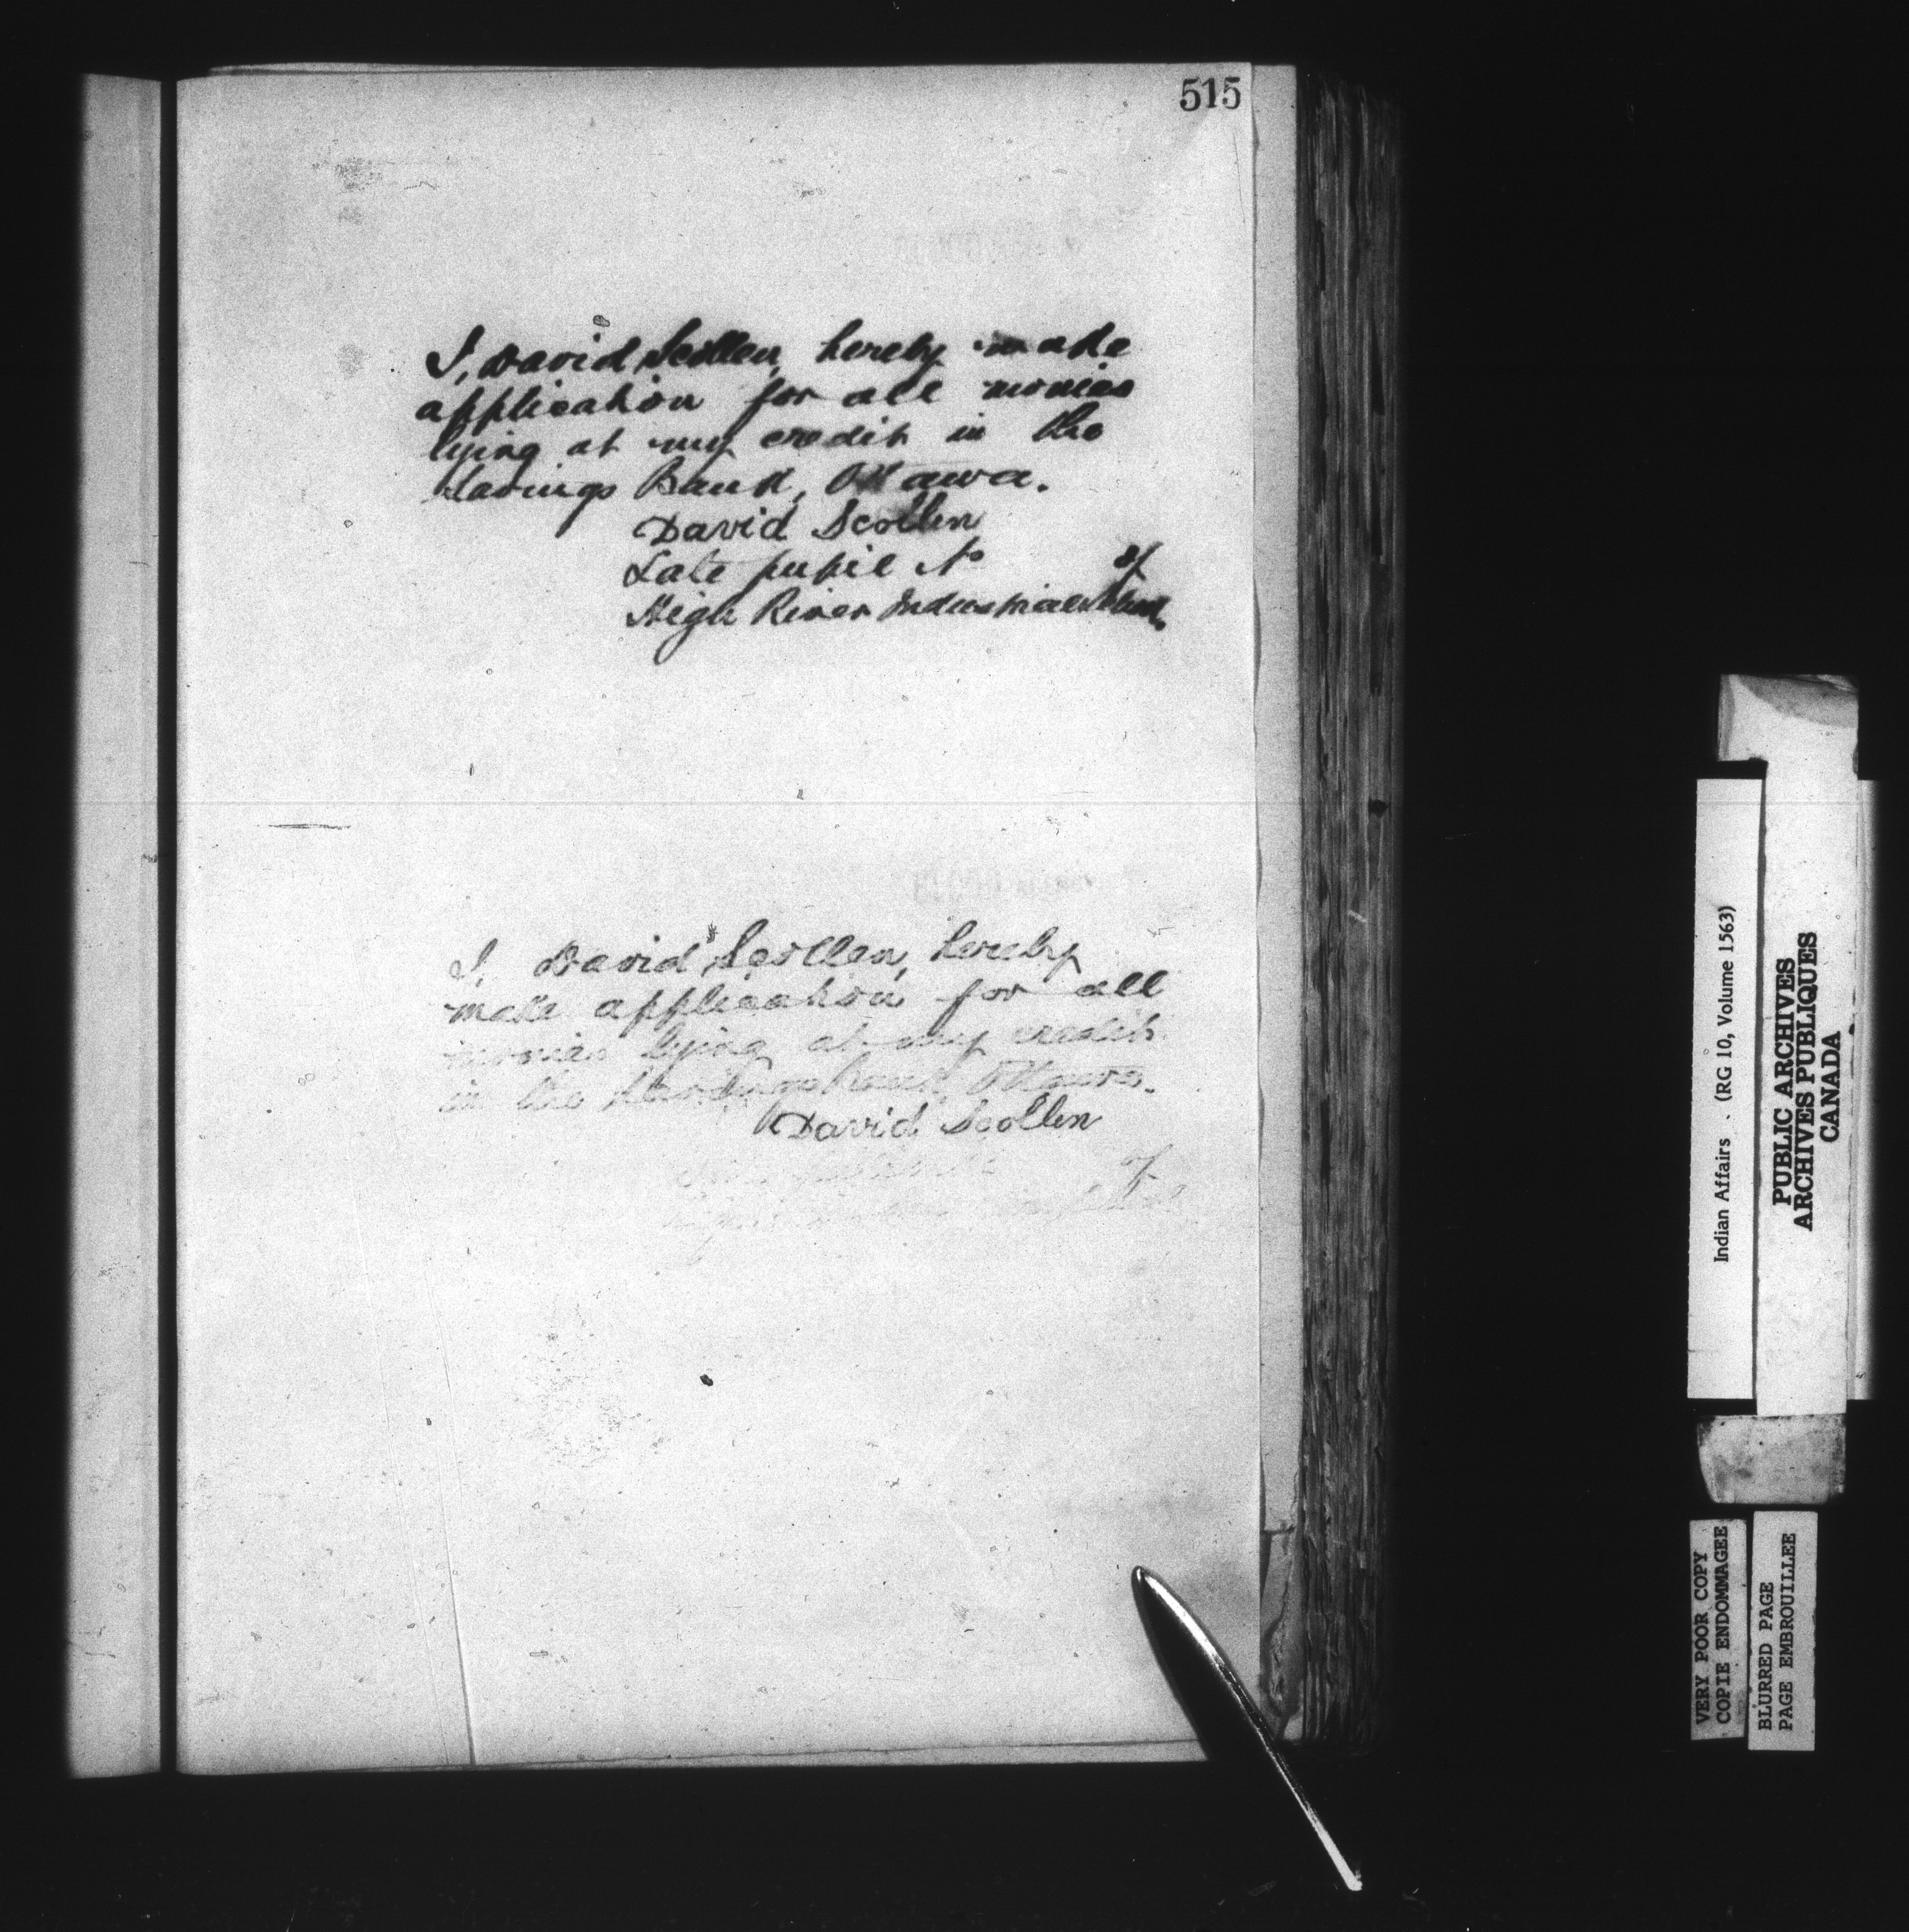 515
I, David Scollen, hereby make
application for all monies
lying at my credit in the
Savings Bank, Ottawa.
David Scollen
Late pupil No of
High River Industrial School.
I, David Scollen, hereby
make application for all
monies lying at my credit
in the Savings Bank, Ottawa.
David Scollen
of
Indian Affairs . (RG 10, Volume 1563)
PUBLIC ARCHIVES
ARCHIVES PUBLIQUES
CANADA
VERY POOR COPY
COPIE ENDOMMAGEE
BLURRED PAGE
PAGE EMBROUILLEE